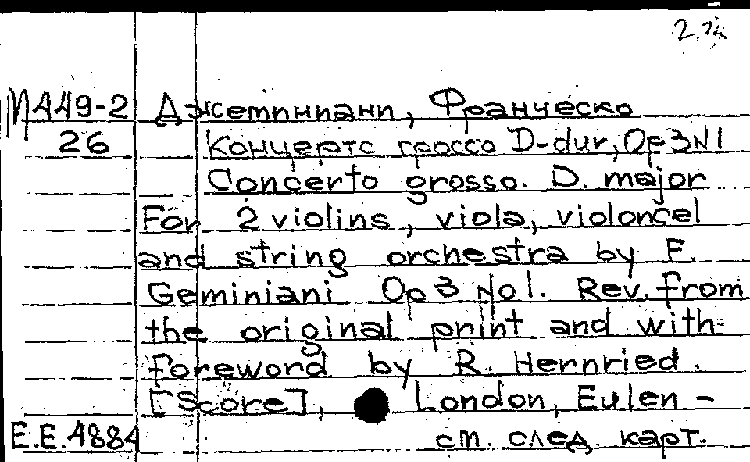 2.
М449-2 Джеминиани, Франческо
26 Концертс гроссо D-dur, Op3N1
Concerto grosso. D. major
For 2 violins, viola, violoncel
and string orchestra by F.
Geminiani Op 3 No1. Rev. from
the original print and with
foreword by R. Hernried.
[Score], London, Eulen-
E.E.4884 см. след. карт.